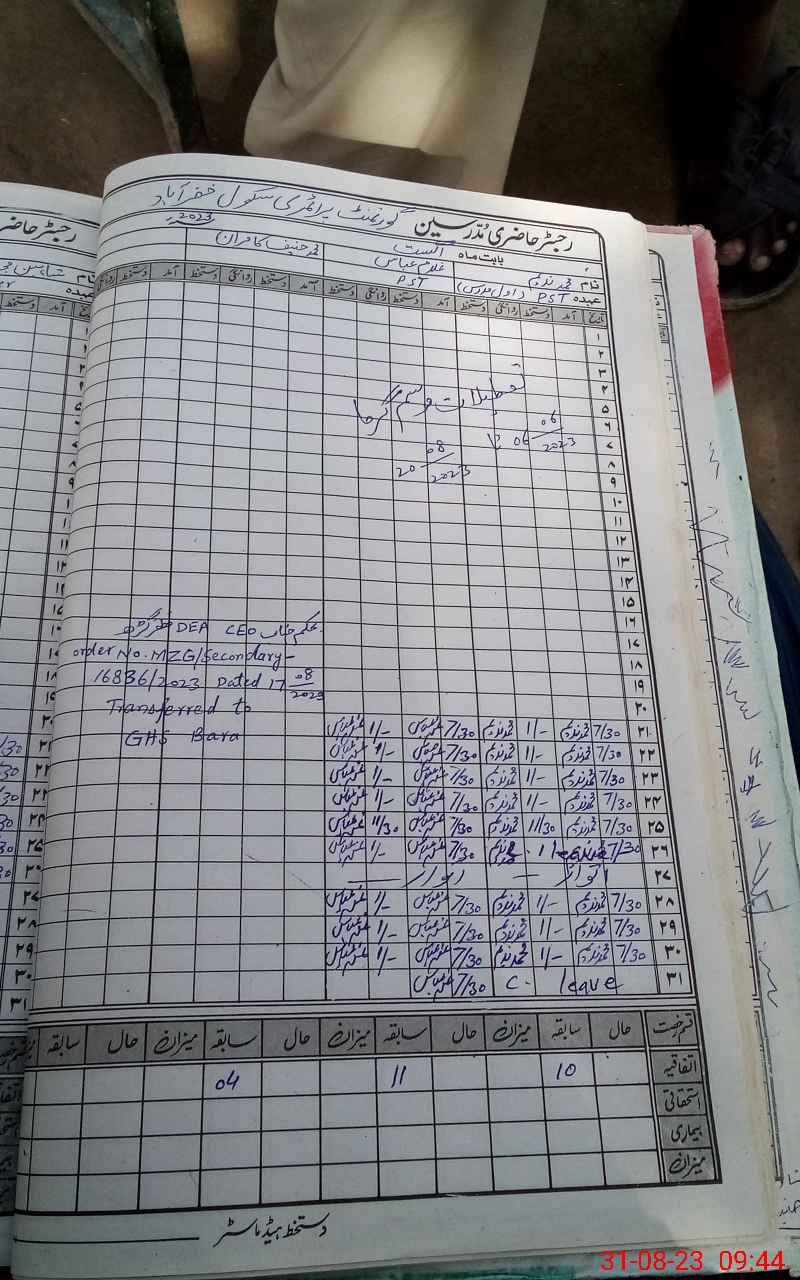 رجسٹر حاضری مُدرسین گورنمنٹ پرائمری سکول خضرآباد
بابت ماہ اگست 2023ء
نام محمد ندیم غلام عباس محمد حنیف کامران
عہدہ PST (اول مدرس) PST
تاریخ آمد دستخط روانگی دستخط آمد دستخط روانگی دستخط آمد دستخط روانگی دستخط
۱
۲
۳
۴
۵
۶
۷
۸
۹
۱۰
۱۱
۱۲
۱۳
۱۴
۱۵
۱۶
۱۷
۱۸
۱۹
۲۰
تعطیلات موسم گرما
06/06/2023 تا
20/08/2023
بحکم جناب CEO DEA مظفرگڑھ
order No. MZG/Secondary-
16836/2023 Dated 17/08/2023
Transferred to
GHS Bara
۲۱ 7/30 محمد ندیم 1/- محمد ندیم 7/30 غلام عباس 1/- غلام عباس
۲۲ 7/30 محمد ندیم 1/- محمد ندیم 7/30 غلام عباس 1/- غلام عباس
۲۳ 7/30 محمد ندیم 1/- محمد ندیم 7/30 غلام عباس 1/- غلام عباس
۲۴ 7/30 محمد ندیم 1/- محمد ندیم 7/30 غلام عباس 1/- غلام عباس
۲۵ 7/30 محمد ندیم 11/30 محمد ندیم 7/30 غلام عباس 11/30 غلام عباس
۲۶ 7/30 leave محمد ندیم 7/30 غلام عباس 1/- غلام عباس
۲۷ اتوار — اتوار —
۲۸ 7/30 محمد ندیم 1/- محمد ندیم 7/30 غلام عباس 1/- غلام عباس
۲۹ 7/30 محمد ندیم 1/- محمد ندیم 7/30 غلام عباس 1/- غلام عباس
۳۰ 7/30 محمد ندیم 1/- محمد ندیم 7/30 غلام عباس 1/- غلام عباس
۳۱ C. leave 7/30 غلام عباس
قسم رخصت حال سابقہ میزان حال سابقہ میزان حال سابقہ میزان حال سابقہ
اتفاقیہ 10 11 04
استحقاقی
بیماری
میزان
دستخط ہیڈ ماسٹر
31-08-23 09:44